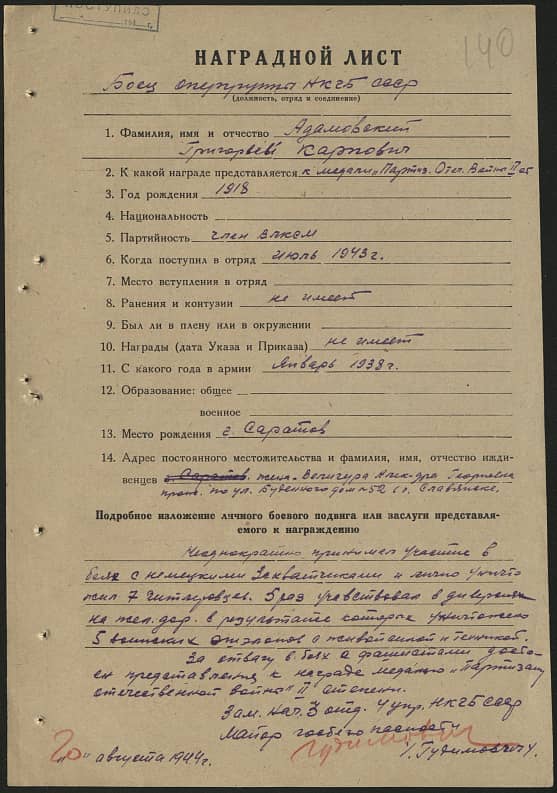 ПОСТУПИЛ
140
НАГРАДНОЙ ЛИСТ
Боец опергруппы НКГБ СССР
(должность, отряд и соединение)
1. Фамилия, имя и отчество Адамовский
Григорьев Карпович
2. К какой награде представляется к медали „Партиз. Отеч. Войны" II ст
3. Год рождения 1918
4. Национальность
5. Партийность член ВЛКСМ
6. Когда поступил в отряд июль 1943 г.
7. Место вступления в отряд
8. Ранения и контузии не имеет
9. Был ли в плену или в окружении
10. Награды (дата Указа и Приказа) не имеет
11. С какого года в армии Январь 1938 г.
12. Образование: общее
военное
13. Место рождения г. Саратов
14. Адрес постоянного местожительства и фамилия, имя, отчество ижди-
венцев г. Саратов. жена
прож. по ул. Буденного дом № 52 г. Славянске.
Подробное изложение личного боевого подвига или заслуги представля-
емого к награждению
Неоднократно принимал участие в
боях с немецкими захватчиками и лично уничто
жил 7 гитлеровцев. 5 раз участвовал в диверсиях
на жел. дор. в результате которых уничтожено
5 воинских эшелонов с живой силой и техникой.
За отвагу в боях с фашистами досто-
ен представления к награде медалью „Партизану
отечественной войны" II степени.
Зам. Нач. 3 отд. 4 упр. НКГБ СССР
Майор госбезопасности
Гудимович
/. Гудимович/.
„20" августа 1944 г.